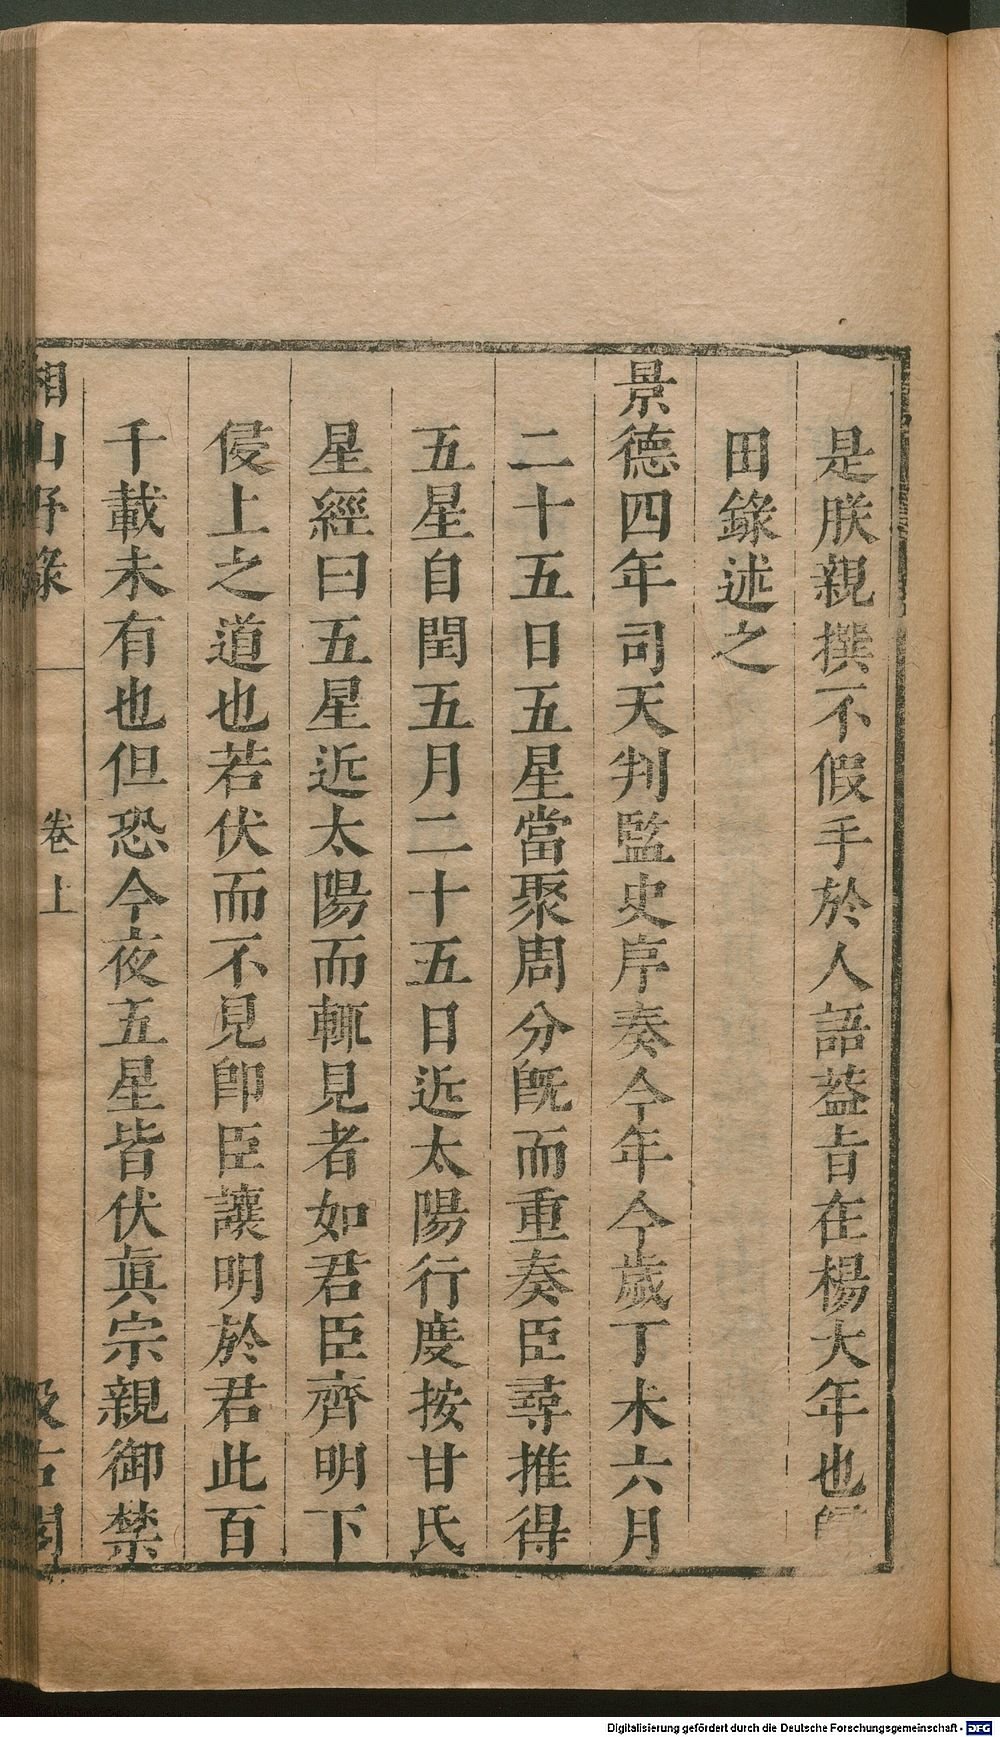 是朕親撰不假手於人語蓋㫖在楊大年也歸
田錄述之
景德四年司天判監史序奏今年今歲丁未六月
二十五日五星當聚周分旣而重奏臣尋推得
五星自閏五月二十五日近太陽行度按甘氏
星經曰五星近太陽而輒見者如君臣齊明下
侵上之道也若伏而不見卽臣讓明於君此百
千載未有也但恐今夜五星皆伏眞宗親御禁
湘山野錄 卷上 汲古閣
Digitalisierung gefördert durch die Deutsche Forschungsgemeinschaft - DFG